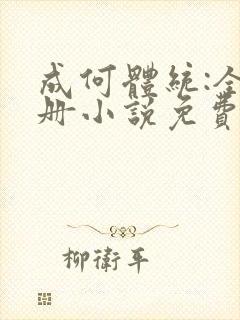 成何體統:全
册小說免費
柳衛平